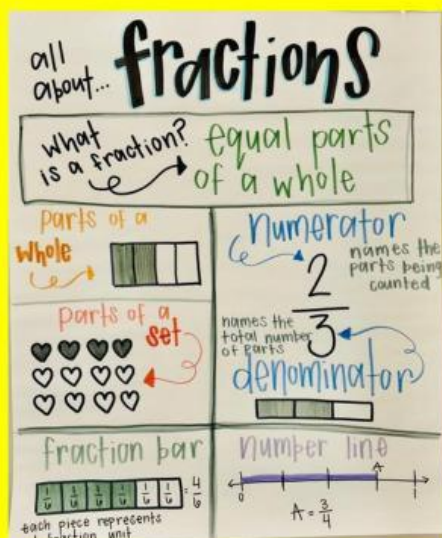 all
about...
fractions
What
is a fraction?
equal parts
of a whole
parts of a
whole
parts of a
set
numerator
names the
parts being
counted
2
3
names the
total number
of parts
denominator
fraction bar
1/6 1/6 1/6 1/6 1/6 1/6 = 4/6
each piece represents
fraction unit
number line
A
0 1
A = 3/4